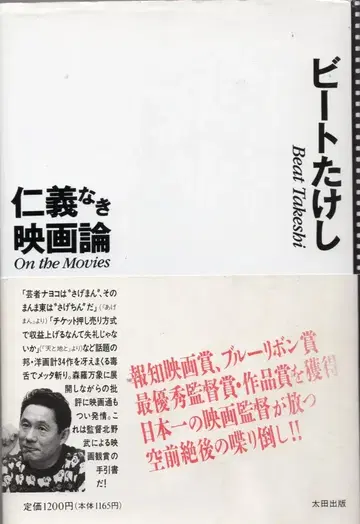 ビートたけし
Beat Takeshi
仁義なき
映画論
On the Movies
「芸者ナヨコは“さげまん”、その
まんま東は“さげちん”だ」(「あげ
まん」より)「チケット押し売り方式
で収益上げるなんて失礼じゃな
いか」(「天と地と」より)など話題の
邦・洋画計34作を冴えまくる毒
舌でメッタ斬り。森羅万象に展
開しながらの批
評に映画通も
つい発情。こ
れは監督北野
武による映
画観賞の
手引書
だ!
報知映画賞、ブルーリボン賞
最優秀監督賞・作品賞を獲得
日本一の映画監督が放つ
空前絶後の喋り倒し!!
定価1200円(本体1165円)
太田出版